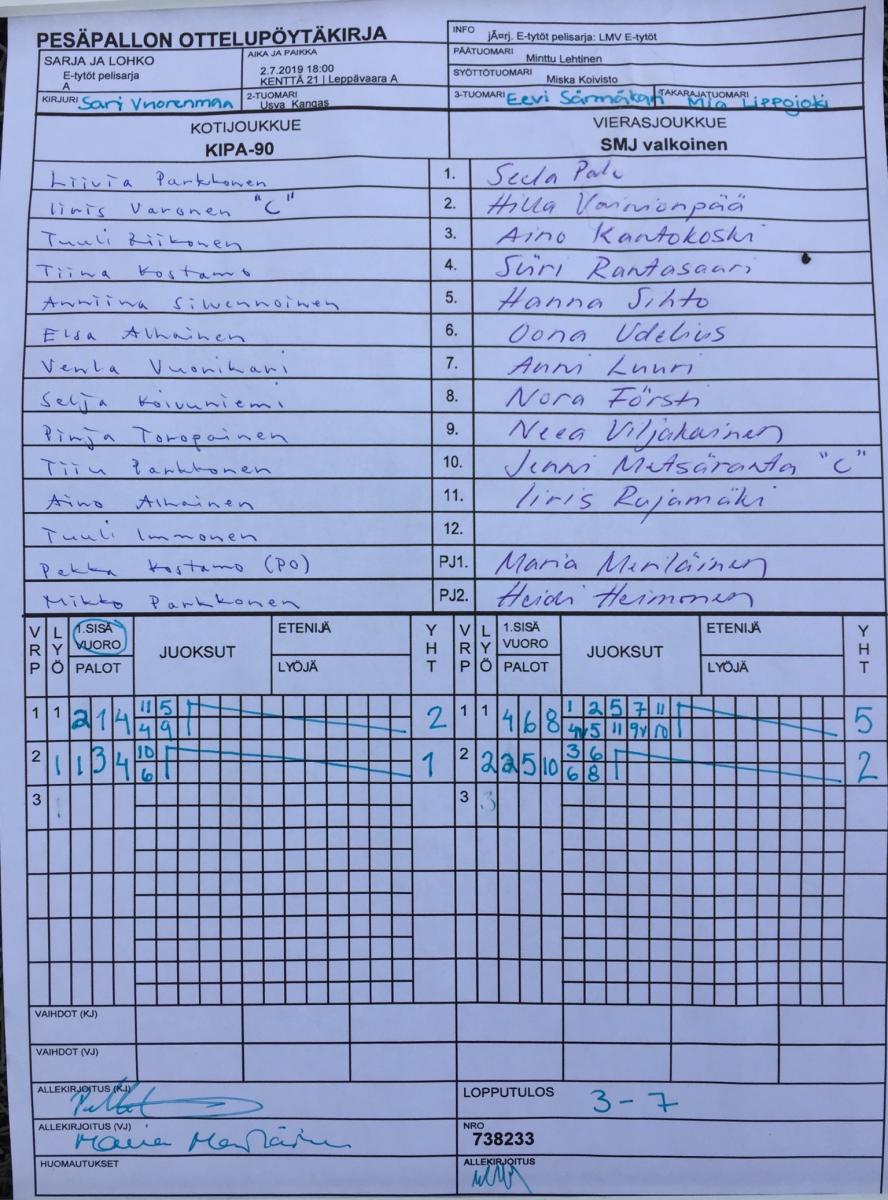 PESÄPALLON OTTELUPÖYTÄKIRJA
INFO jÃ¤rj. E-tytöt pelisarja: LMV E-tytöt
SARJA JA LOHKO
E-tytöt pelisarja
A
AIKA JA PAIKKA
2.7.2019 18:00
KENTTÄ 21 | Leppävaara A
PÄÄTUOMARI Minttu Lehtinen
SYÖTTÖTUOMARI Miska Koivisto
KIRJURI Sari Vuorenmaa
2-TUOMARI Usva Kangas
3-TUOMARI Eevi Särmäkari
TAKARAJATUOMARI Mia Lippojoki
KOTIJOUKKUE VIERASJOUKKUE
KIPA-90 SMJ valkoinen
Liivia Parkkonen 1. Seela Palo
Iiris Varonen "C" 2. Hilla Vainionpää
Tuuli Riikonen 3. Aino Kantokoski
Tiina Kostamo 4. Siiri Rantasaari
Anniina Sihvennoinen 5. Hanna Sihto
Elsa Alhainen 6. Oona Udelius
Venla Vuorikari 7. Anni Luuri
Selja Koivuniemi 8. Nora Försti
Pinja Toropainen 9. Neea Viljakainen
Tiiu Parkkonen 10. Jenni Metsäranta "C"
Aino Alhainen 11. Iiris Rajamäki
Tuuli Immonen 12.
Pekka Kostamo (PO) PJ1. Maria Meriläinen
Mikko Parkkonen PJ2. Heidi Heimonen
VRP LYÖ 1.SISÄ VUORO PALOT JUOKSUT ETENIJÄ LYÖJÄ YHT VRP LYÖ 1.SISÄ VUORO PALOT JUOKSUT ETENIJÄ LYÖJÄ YHT
1 1 2 1 4 11 5 2 1 1 4 6 8 1 2 5 7 11 5
4 9 4v 5 11 9v 10
2 1 1 3 4 10 1 2 2 2 5 10 3 6 2
6 6 8
3 3 3
VAIHDOT (KJ)
VAIHDOT (VJ)
ALLEKIRJOITUS (KJ)
LOPPUTULOS 3-7
ALLEKIRJOITUS (VJ) Maria Meriläinen
NRO
738233
HUOMAUTUKSET
ALLEKIRJOITUS